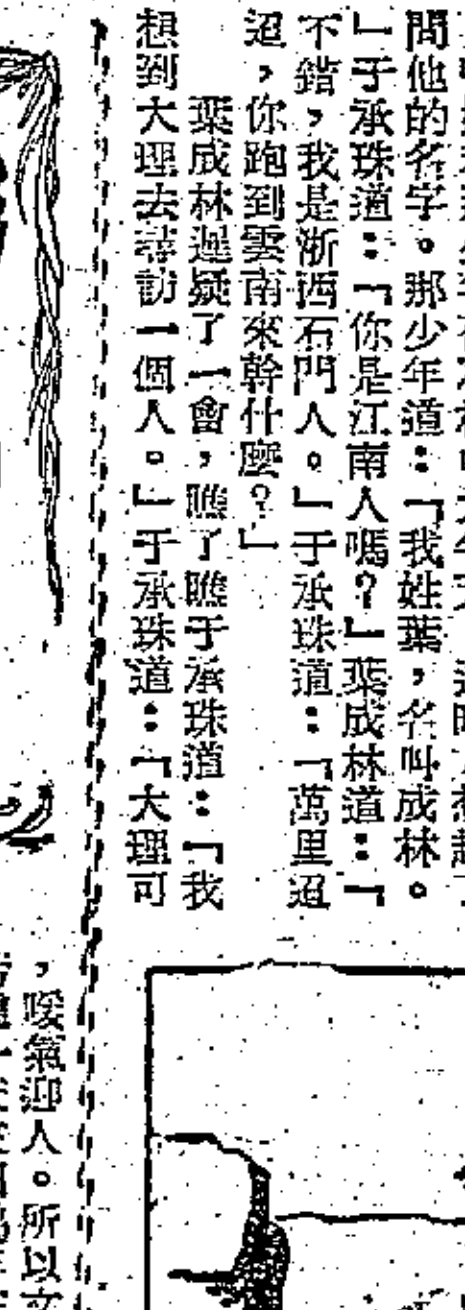 問他的名字。那少年道：「我姓葉，名叫成林。
」于承珠道：「你是江南人嗎？」葉成林道：「
不錯，我是浙西石門人。」于承珠道：「萬里迢
迢，你跑到雲南來幹什麼？」
葉成林遲疑了一會，瞧了瞧于承珠道：「我
想到大理去尋訪一個人。」于承珠道：「大理可
，暖氣迎人。所以